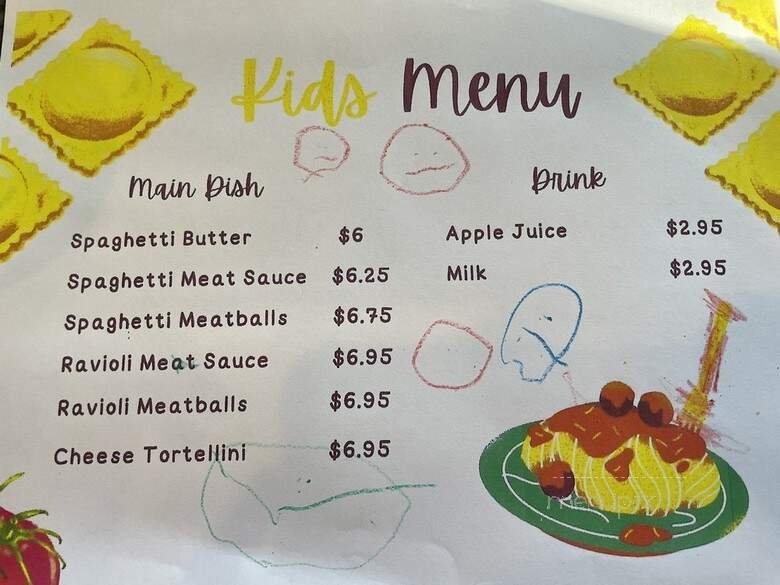 Kids Menu
Main Dish
Spaghetti Butter $6
Spaghetti Meat Sauce $6.25
Spaghetti Meatballs $6.75
Ravioli Meat Sauce $6.95
Ravioli Meatballs $6.95
Cheese Tortellini $6.95
Drink
Apple Juice $2.95
Milk $2.95